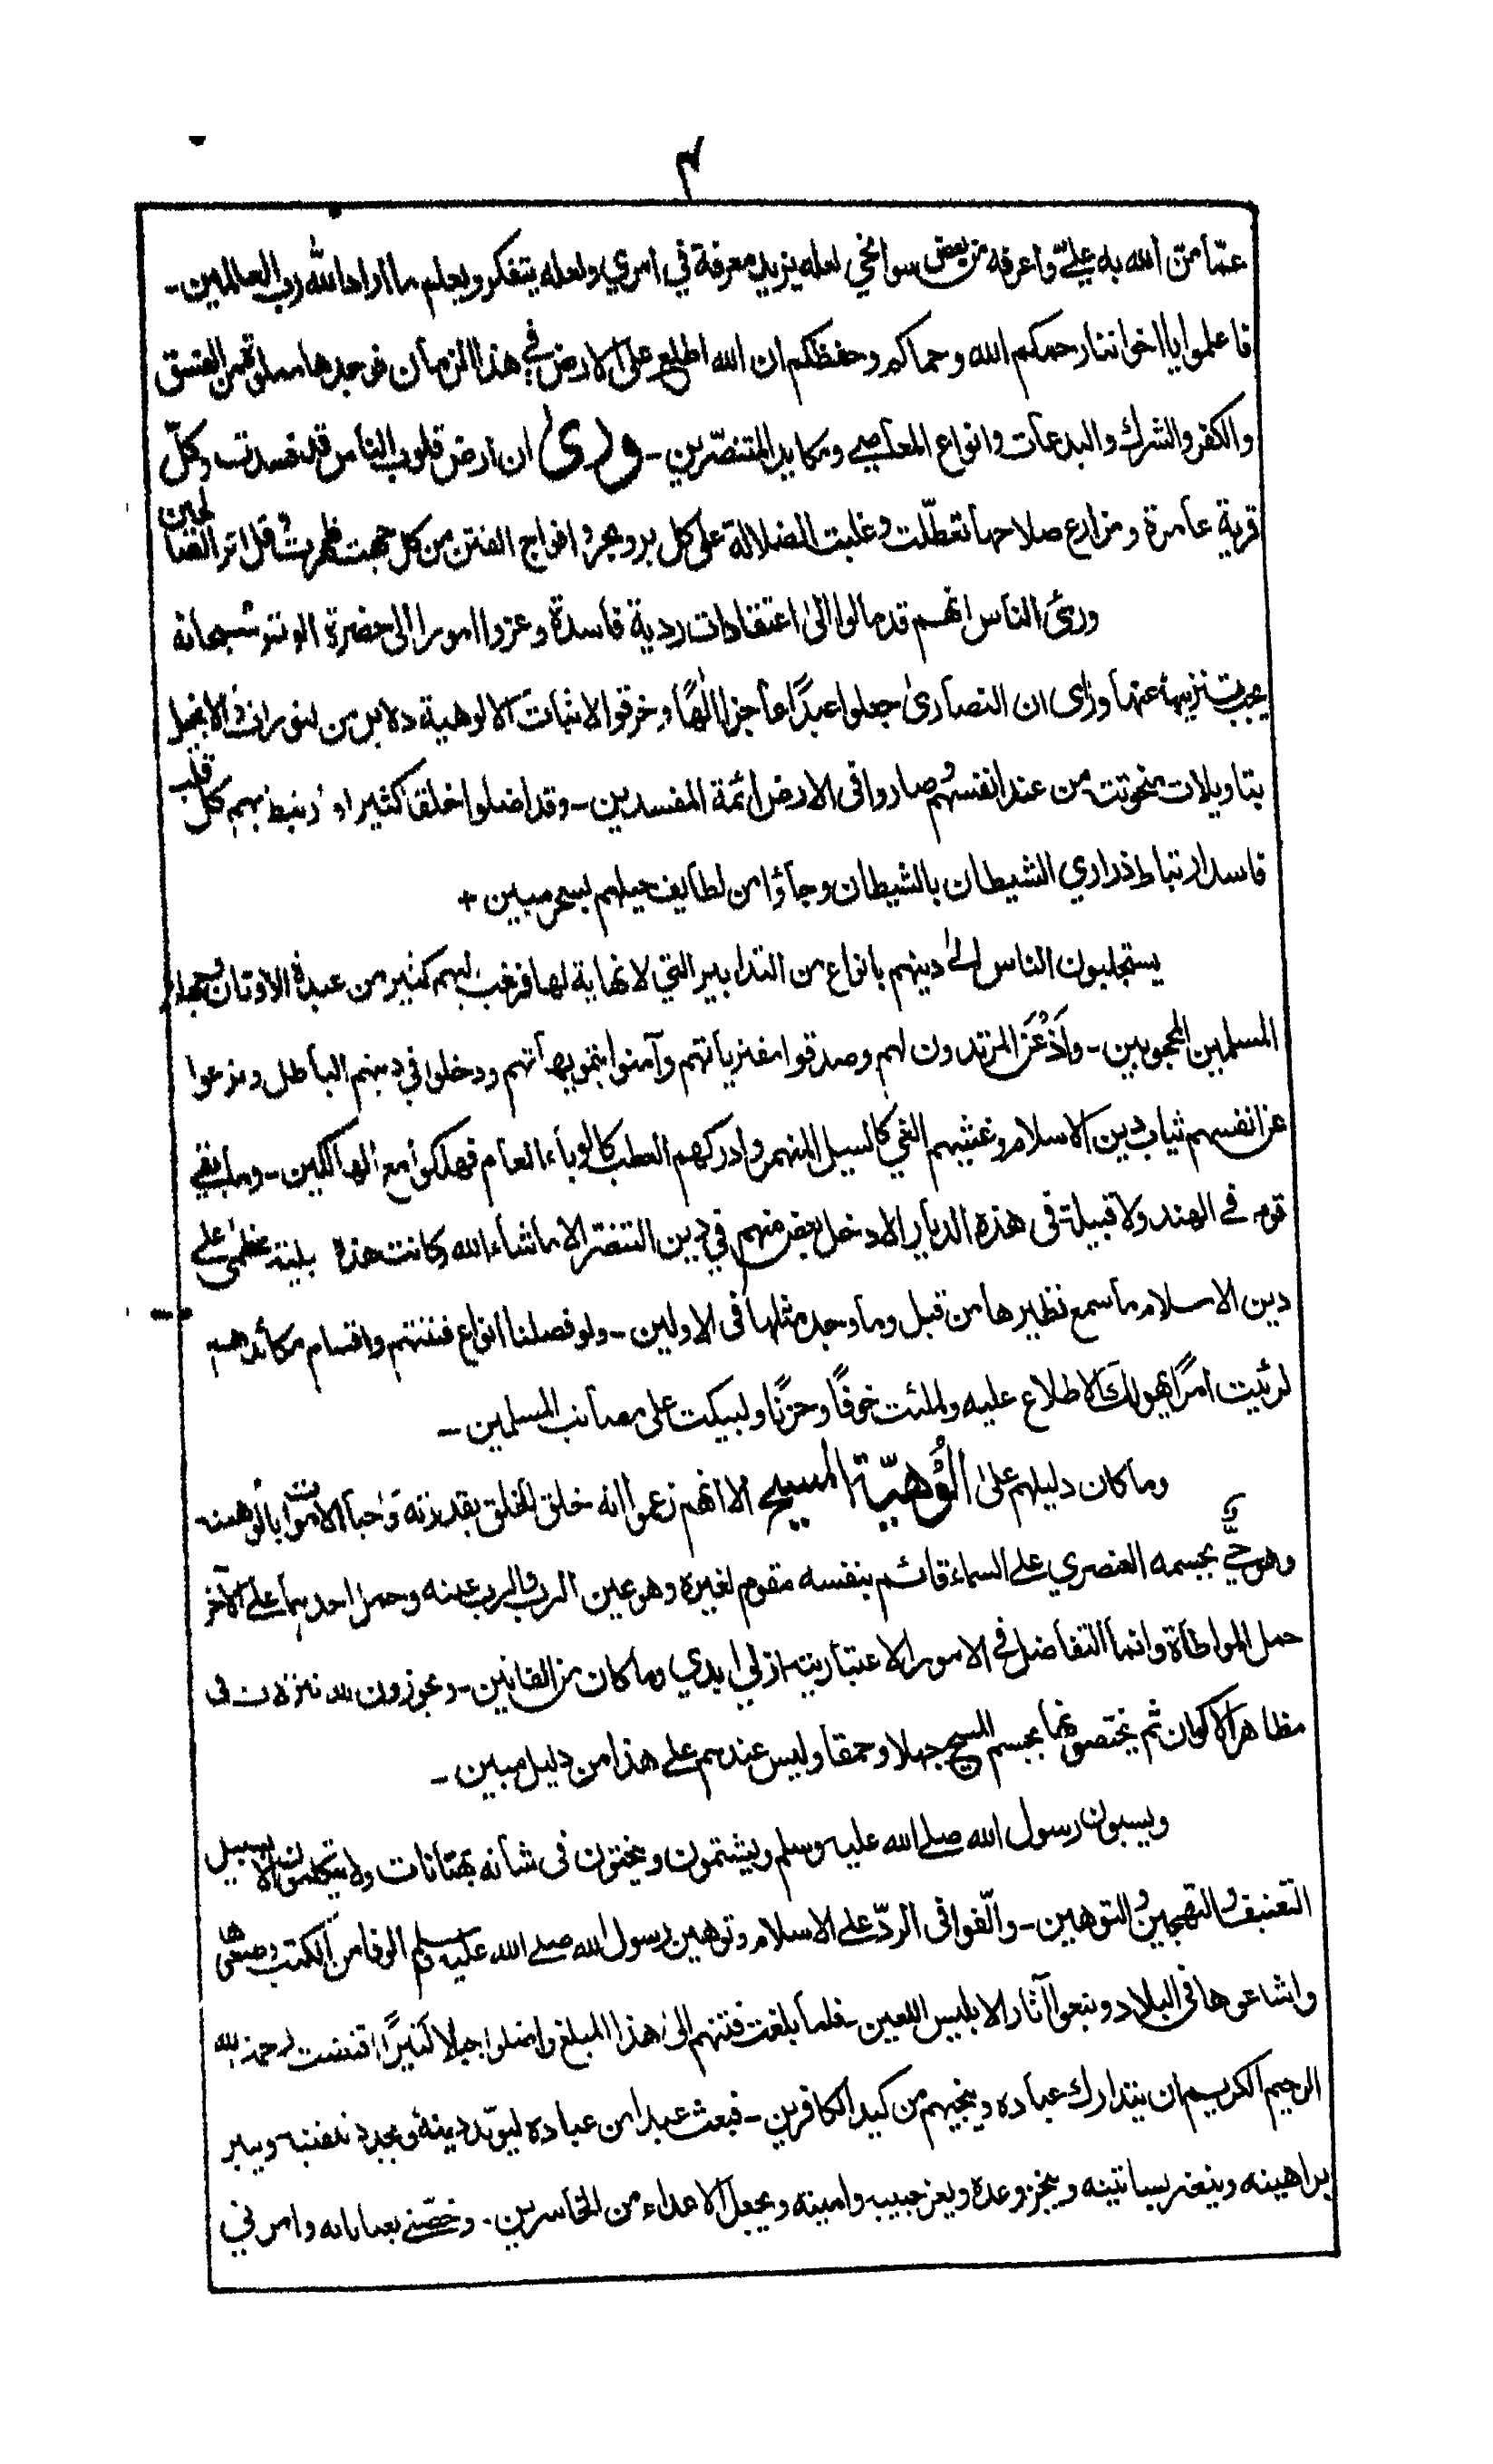 ٣
عمّا منّ الله به عليّ وأعرفه من بعض سوانحي لعله يزيد معرفة في أمري ولعله يتفكر ويعلم ما أراد الله رب العالمين -
فاعلموا يا إخواننا رحمكم الله وحماكم وحفظكم ان الله اطلع على الارض في هذا الزمان فوجدها مملوة من الفسق
والكفر والشرك والبدعات وانواع المعاصي ومكايد المتنصّرين - ورئ ان ارض قلوب الناس قد فسدت وكلّ
قرية عامرة ومزارع صلاحها تعطّلت وغلبت الضلالة على كل بر وبحر وافواج الفتن من كل جهت ظهرت وقل اثر الصالحين
ورئ الناس انهم قد مالوا الى اعتقادات ردية فاسدة وعزوا امورا الى حضرة الوتر سبحانه
يجب تنزيهه عنها ورأى ان النصارى جعلوا عبدًا عاجزا الٰهًا وخرقوا لاثبات الالوهية دلايل من التوراة والانجيل
بتاويلات منحوتت من عند انفسهم وصاروا فى الارض ائمة المفسدين - وقد اضلوا خلقا كثيرا وارتبط بهم كل قلب
فاسد ارتباط ذراري الشيطان بالشيطان وجاؤا من لطايف حيلهم بسحر مبين +
يستجلبون الناس الى دينهم بانواع من التدابير التي لا نهاية لها فرغب اليهم كثير من عبدة الاوثان وجهلاء
المسلمين المحجوبين - وأذعن المرتدون لهم وصدقوا مفترياتهم وآمنوا بتمويهاتهم ودخلوا في دينهم الباطل ونزعوا
عن انفسهم ثياب دين الاسلام وغشيهم الغي كالسيل المنهمر وادركهم العطب كالوباء العام فهلكوا مع الهالكين - وما بقي
قوم في الهند ولا قبيلة فى هذه الديار الا دخل بعض منهم في دين التنصّر الا ما شاء الله وكانت هذه بلية عظمى على
دين الاسلام ما سمع نظيرها من قبل وما وجد مثلها فى الاولين - ولو فصلنا انواع فتنتهم واقسام مكائدهم
لرئيت امرًا يهولك الاطلاع عليه ولملئت خوفًا وحزنًا ولبكيت على مصائب المسلمين -
وما كان دليلهم على الُوهيّة المسيح الا انهم زعموا انه خلق الخلق بقدرته واحيا الاموات بألوهيته
وهو حيّ بجسمه العنصري على السماء قائم بنفسه مقوم لغيره وهو عين الرب والرب عينه وحمل احدهما على الآخر
حمل المواطاة وانما التفاضل في الامور الاعتبارية ازلي ابدي وما كان من الفانين - ويجوزون لله تنزلات فى
مظاهر الاكوان ثم يختصونها بجسم المسيح جهلا وحمقا وليس عندهم على هذا من دليل مبين -
ويسبون رسول الله صلى الله عليه وسلم ويشتمون وينحتون فى شانه بهتانات ولا يتكلمون الا بسبيل
التعنيف والتهجين والتوهين - والّفوا فى الردّ على الاسلام وتوهين رسول الله صلى الله عليه وسلم الوفا من الكتب وطبعوها
واشاعوها فى البلاد وتبعوا آثار الابليس اللعين - فلما بلغت فتنهم الى هذا المبلغ واضلوا جبلا كثيرًا اقتضت رحمة الله
الرحيم الكريم ان يتدارك عباده وينجيهم من كيد الكافرين - فبعث عبدا من عباده ليؤيد دينه ويجدد تلقينه وينير
براهينه وينضر بساتينه وينجز وعده ويعز حبيبه وامينه ويجعل الاعداء من الخاسرين. وخصّني بعناياته وامرني